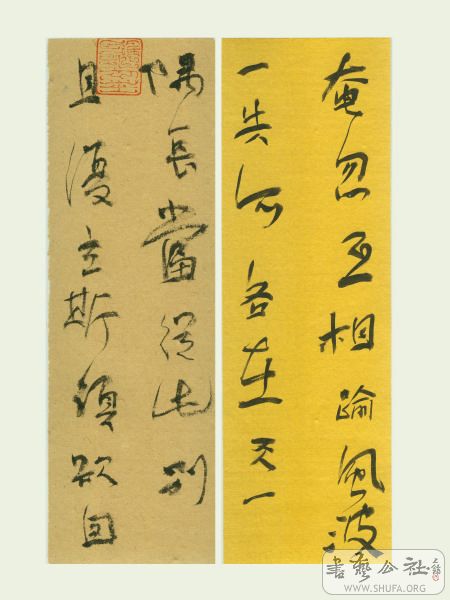 奄忽互相踰風波
一失所各在天一
隅長當從此別
且復立斯須欲因
書藝公社
WWW.SHUFA.ORG